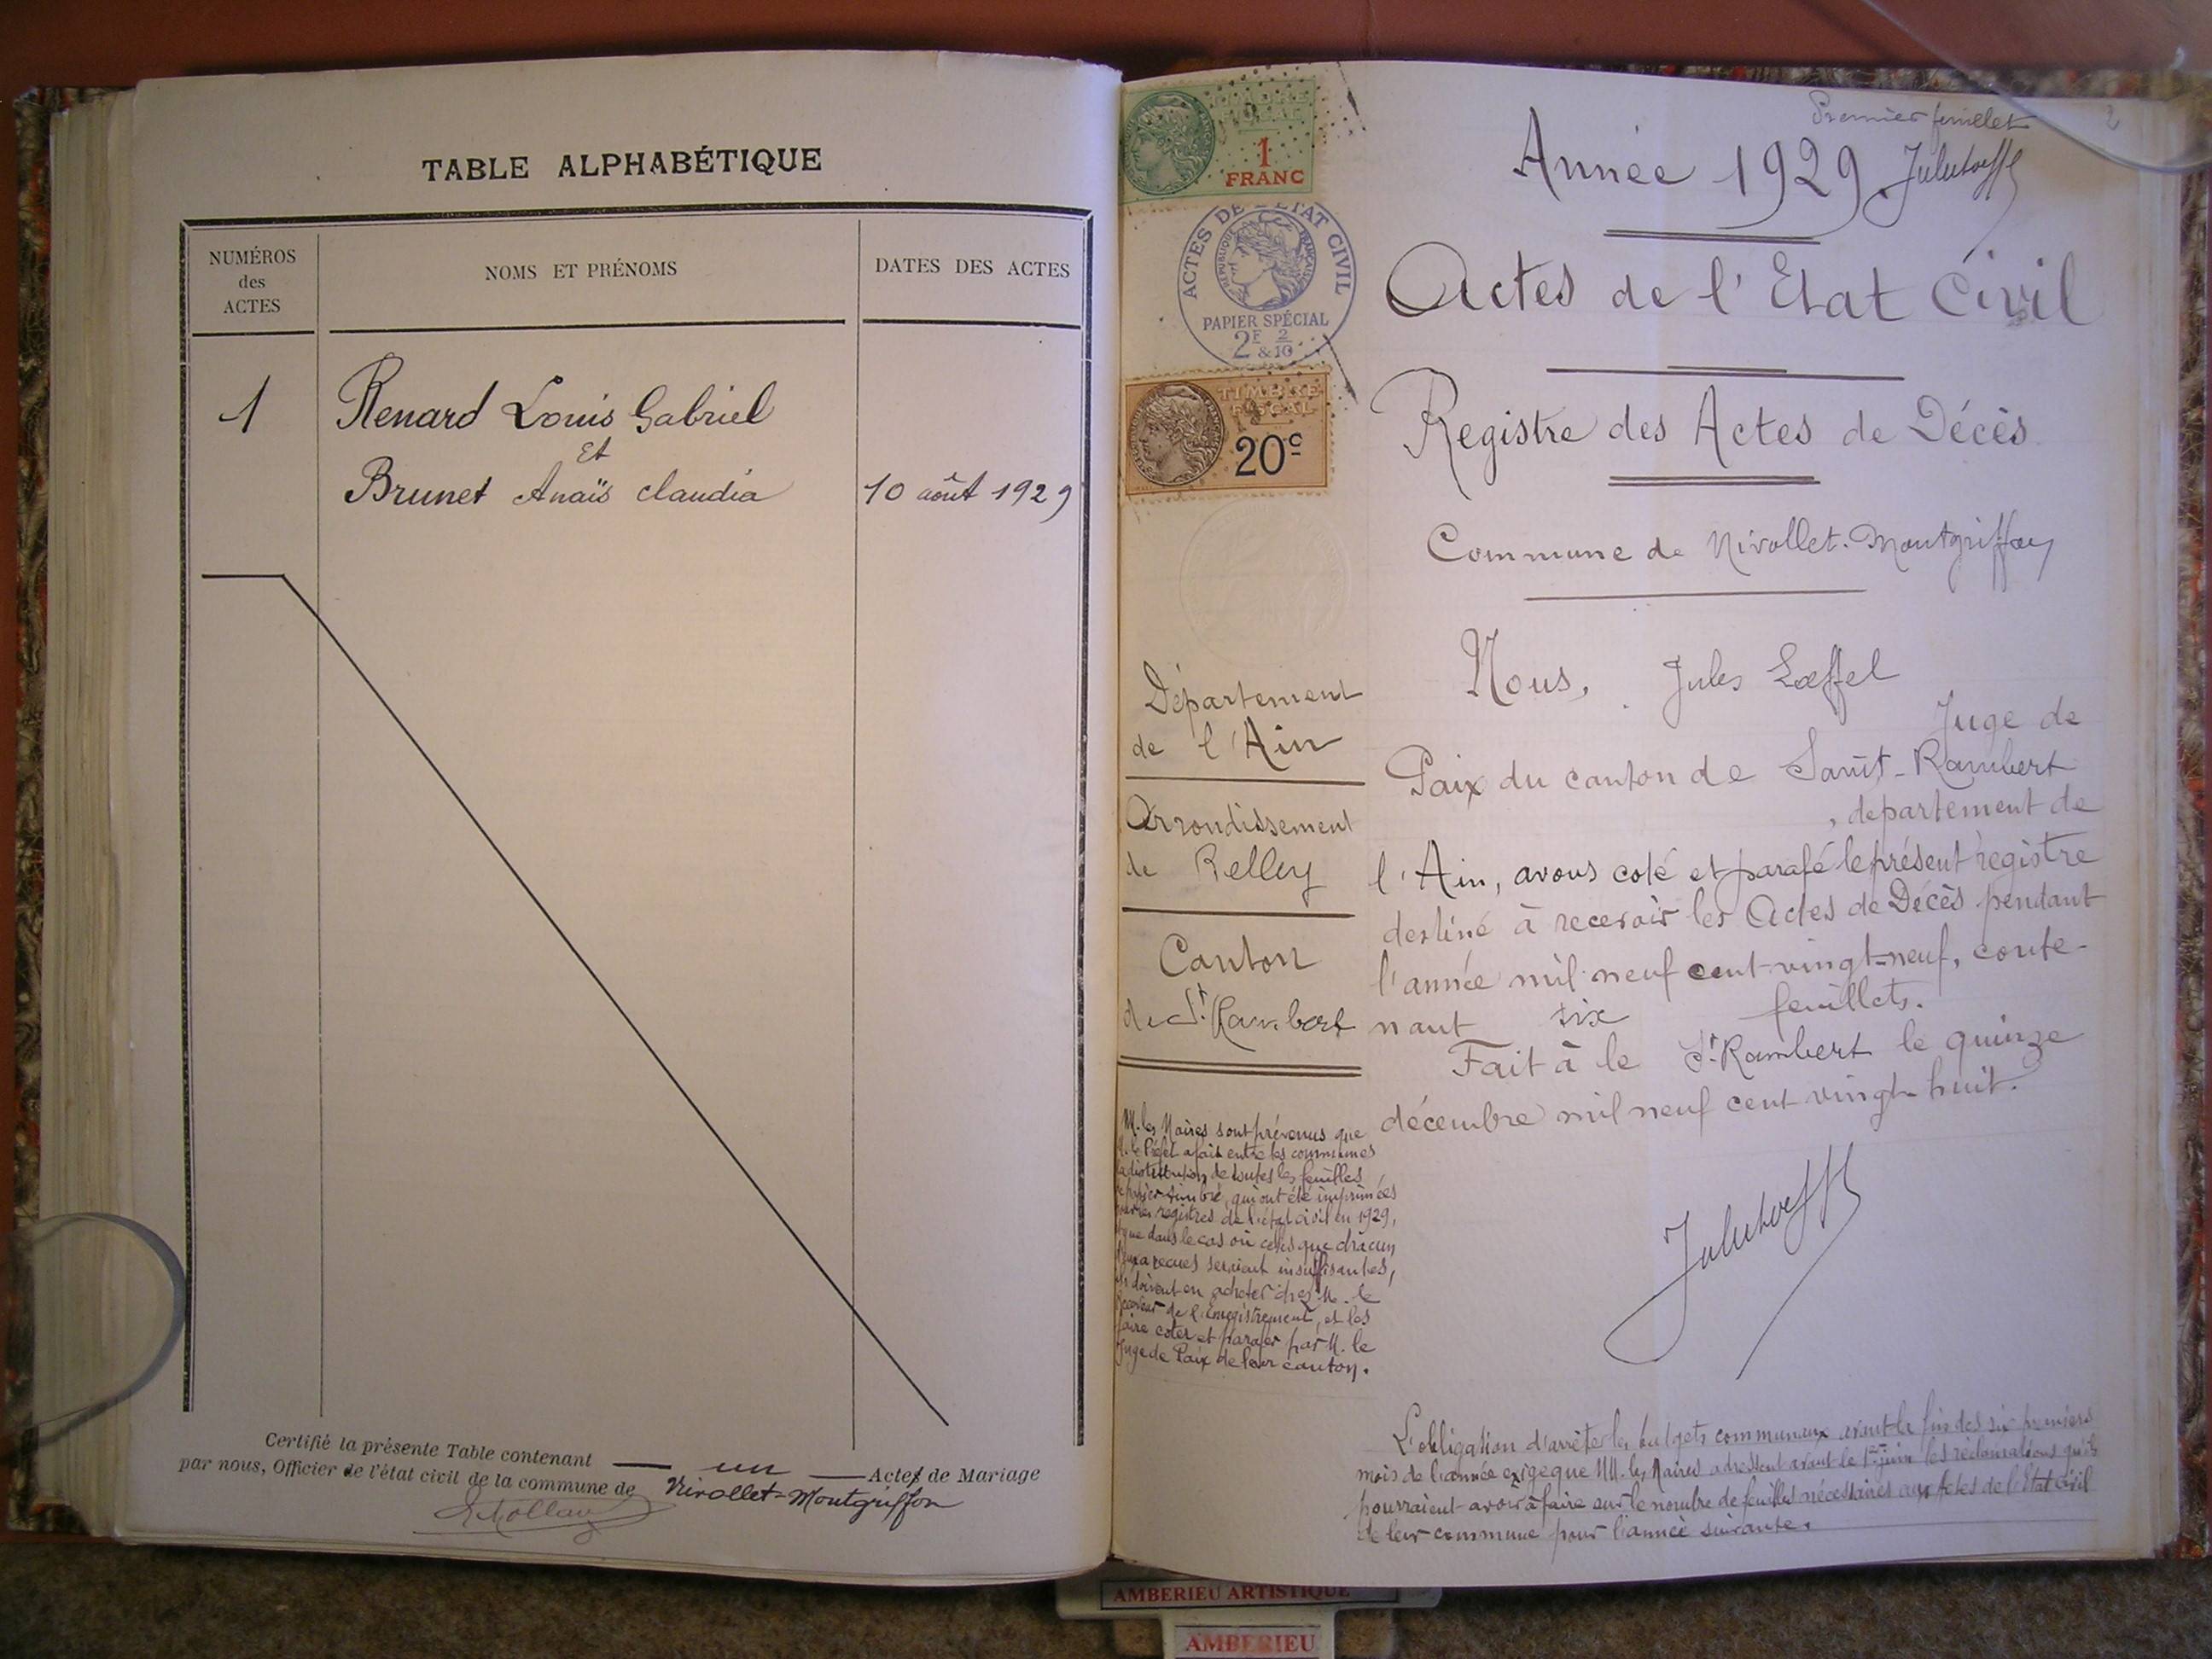 TABLE ALPHABÉTIQUE
NUMÉROS
des
ACTES
NOMS ET PRÉNOMS
DATES DES ACTES
1
Renard Louis Gabriel
Et
Brunet Anaïs Claudia
10 août 1929
Certifié la présente Table contenant un Actes de Mariage
par nous, Officier de l'état civil de la commune de Nivollet-Montgriffon
TIMBRE
FISCAL
1
FRANC
ACTES DE L'ETAT CIVIL
REPUBLIQUE FRANÇAISE
PAPIER SPÉCIAL
2F & 2/10
TIMBRE
FISCAL
20c
Département
de l'Ain
Arrondissement
de Belley
Canton
de St Rambert
M. les Maires sont prévenus que
M. le Préfet a fait entre les communes
la distribution de toutes les feuilles
de papier timbré, qui ont été imprimées
pour les registres de l'état civil en 1929,
et que dans le cas où celles que chacun
d'eux a reçues seraient insuffisantes,
ils doivent en acheter chez M. le
Receveur de l'Enregistrement, et les
faire coter et parafer par M. le
Juge de Paix de leur canton.
Premier feuillet
2
Année 1929
Actes de l'Etat Civil
Registre des Actes de Décès
Commune de Nivollet-Montgriffon
Nous, Jules Lœffel
Juge de
Paix du canton de Saint-Rambert
, département de
l'Ain, avons coté et parafé le présent registre
destiné à recevoir les Actes de Décès pendant
l'année mil neuf cent vingt-neuf, conte-
nant six feuillets.
Fait à le St Rambert le quinze
décembre mil neuf cent vingt-huit.
L'obligation d'arrêter les budgets communaux avant la fin des six premiers
mois de l'année exige que MM. les Maires adressent avant le 1er juin les réclamations qu'ils
pourraient avoir à faire sur le nombre de feuilles nécessaires aux Actes de l'Etat Civil
de leur commune pour l'année suivante.
AMBERIEU ARTISTIQUE
AMBERIEU